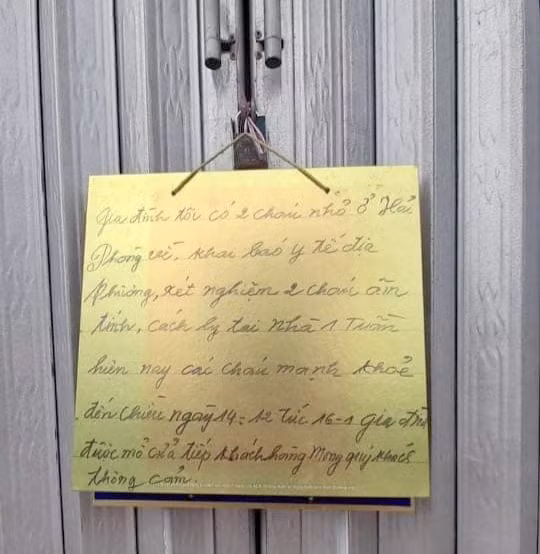 Gia đình tôi có 2 cháu nhỏ ở Hải
Phòng về, khai báo y tế địa
phương, xét nghiệm 2 cháu âm
tính, cách ly tại nhà 1 Tuần
hiện nay các cháu mạnh khoẻ
đến chiều ngày 14-12 tức 16-1 gia đình
được mở cửa tiếp khách hàng Mong quý khách
thông cảm.